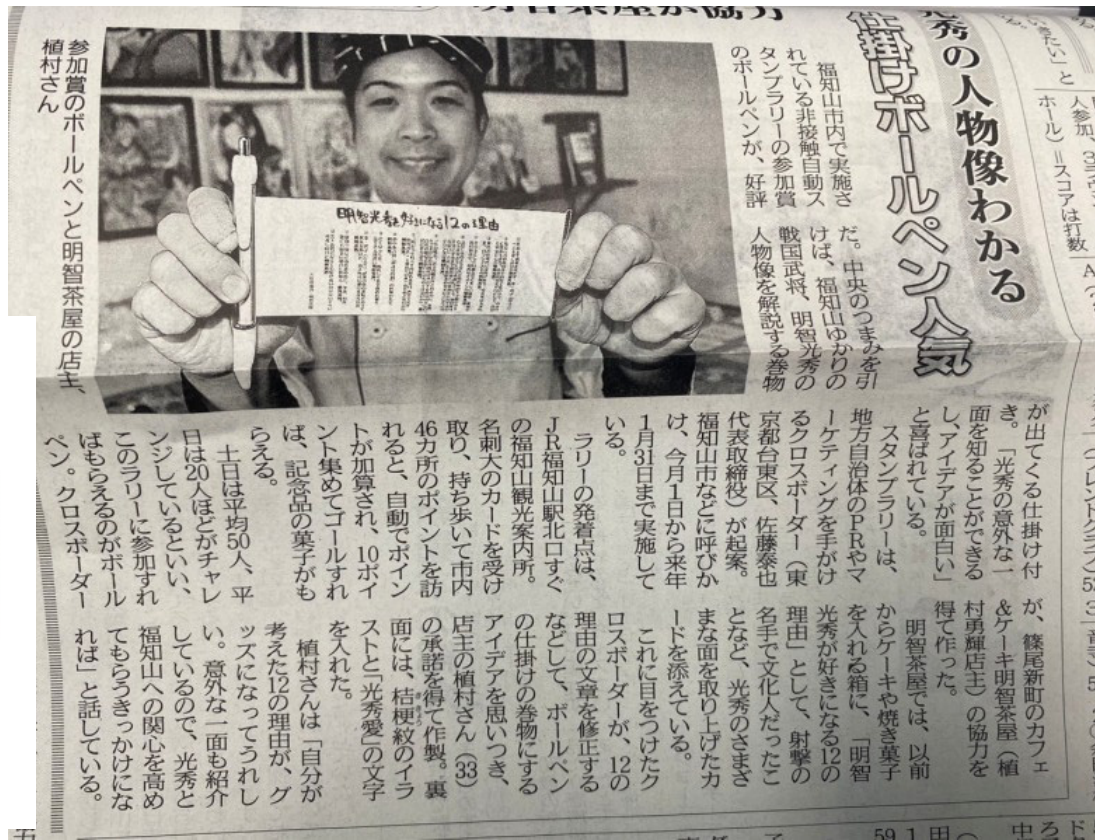 秀の人物像わかる
仕掛けボールペン人気
福知山市内で実施さ
れている非接触自動ス
タンプラリーの参加賞
のボールペンが、好評
だ。中央のつまみを引
けば、福知山ゆかりの
戦国武将、明智光秀の
人物像を解説する巻物
が出てくる仕掛け付
き。「光秀の意外な一
面を知ることができる
し、アイデアが面白い」
と喜ばれている。
スタンプラリーは、
地方自治体のPRやマ
ーケティングを手がけ
るクロスボーダー（東
京都台東区、佐藤泰也
代表取締役）が起案。
福知山市などに呼びか
け、今月1日から来年
1月31日まで実施して
いる。
ラリーの発着点は、
JR福知山駅北口すぐ
の福知山観光案内所。
名刺大のカードを受け
取り、持ち歩いて市内
46カ所のポイントを訪
れると、自動でポイン
トが加算され、10ポイ
ント集めてゴールすれ
ば、記念品の菓子がも
らえる。
土日は平均50人、平
日は20人ほどがチャレ
ンジしているといい、
このラリーに参加すれ
ばもらえるのがボール
ペン。クロスボーダー
が、篠尾新町のカフェ
＆ケーキ明智茶屋（植
村勇輝店主）の協力を
得て作った。
明智茶屋では、以前
からケーキや焼き菓子
を入れる箱に、「明智
光秀が好きになる12の
理由」として、射撃の
名手で文化人だったこ
となど、光秀のさまざ
まな面を取り上げたカ
ードを添えている。
これに目をつけたク
ロスボーダーが、12の
理由の文章を修正する
などして、ボールペン
の仕掛けの巻物にする
アイデアを思いつき、
店主の植村さん（33）
の承諾を得て作製。裏
面には、桔梗紋のイラ
ストと「光秀愛」の文字
を入れた。
植村さんは「自分が
考えた12の理由が、グ
ッズになってうれし
い。意外な一面も紹介
しているので、光秀と
福知山への関心を高め
てもらうきっかけにな
れば」と話している。
参加賞のボールペンと明智茶屋の店主、
植村さん
明智光秀を好きになる12の理由
きたい」と
ホール）＝スコアは打数